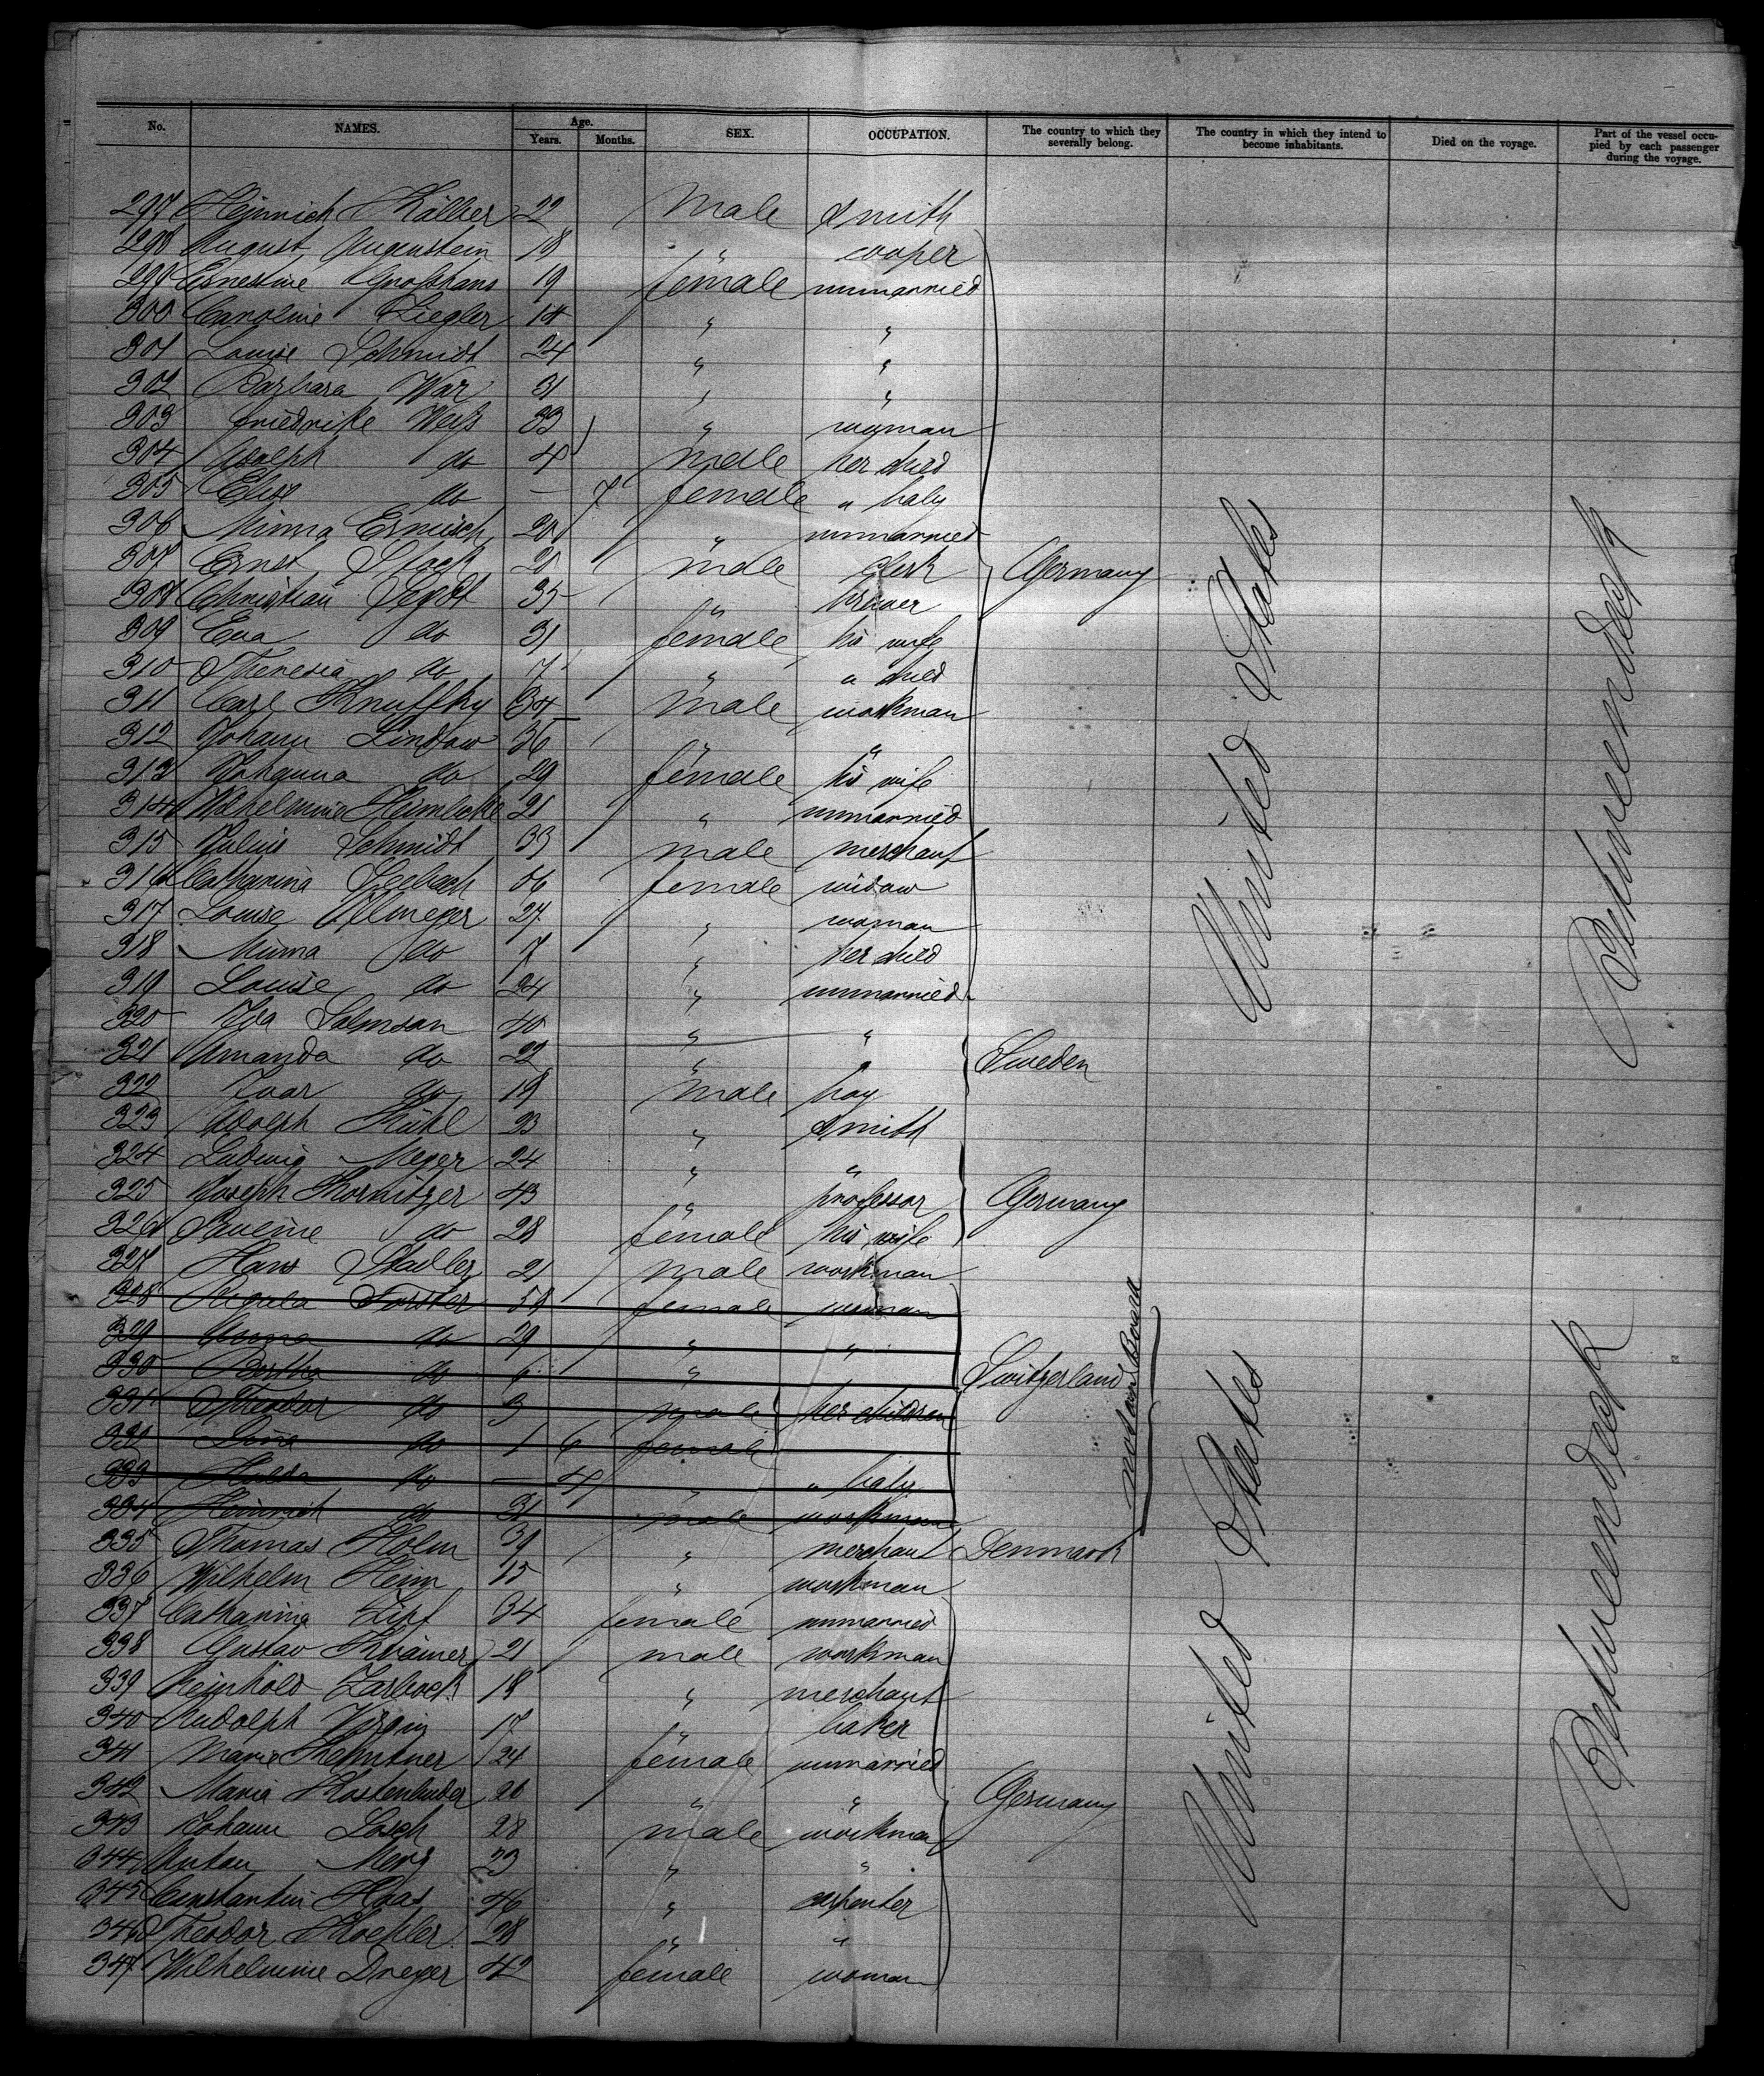 No. NAMES. Age. Years. Months. SEX. OCCUPATION. The country to which they severally belong. The country in which they intend to become inhabitants. Died on the voyage. Part of the vessel occupied by each passenger during the voyage.
297 Heinrich 22 Male Smith
298 August Augenstein 18 " cooper
299 Ernestine Großhans 19 female unmarried
300 Caroline Ziegler 14 " "
301 Louise Schmidt 24 " "
302 Barbara War 31 " "
303 Friedrike Weiß 33 " woman
304 Adolph do 4 Male her child
305 Elise do — 7 female " baby
306 Minna Ermisch 20 " unmarried
307 Ernst Stock male clerk Germany
308 Christian 35 " brewer
309 Eva do 31 female his wife
310 Theresia do 7 " " child
311 Carl 34 Male workman
312 Johann Lindow 36 " "
313 Johanna do 29 female his wife
314 Wilhelmine 21 " unmarried
315 Schmidt male merchant
316 Catharina Seebach female widow
317 Louise 27 " woman
318 Minna do 7 " her child
319 Louise do 24 " unmarried
320 Ida Salmson 40 " "
321 Amanda do 22 " " Sweden
322 Ivar do male boy
323 Adolph Kühl 23 " Smith
324 Ludwig Meyer 24 " "
325 Joseph 43 " professor Germany
326 Pauline do 28 female his wife
327 Hans Stadler 21 male workman
328 Regula Forster female woman
329 Anna do 29 " "
330 Bertha do 6 " Switzerland
331 Theodor do 3 male her children
332 Lina do 1 6 female
333 Hulda do — 4 " " baby
334 Heinrich do 31 male workman
not on Board
335 Thomas Holm 39 " merchant Denmark
336 Wilhelm Heim 15 " workman
337 Catharina Zipf 34 female unmarried
338 Gustav Krämer 21 male workman
339 Reinhold Zarbock 18 " merchant
340 Rudolph Virgin 17 " baker
341 Marie 24 female unmarried
342 Maria Kostenbader 26 " " Germany
343 Johann Losch 28 male workman
344 Anton Merz 23 " "
345 Constantin Haas 46 " carpenter
346 Theodor Koehler 28 " "
347 Wilhelmine Dreyer 42 female woman
United States
Betweendeck
United States
Betweendeck